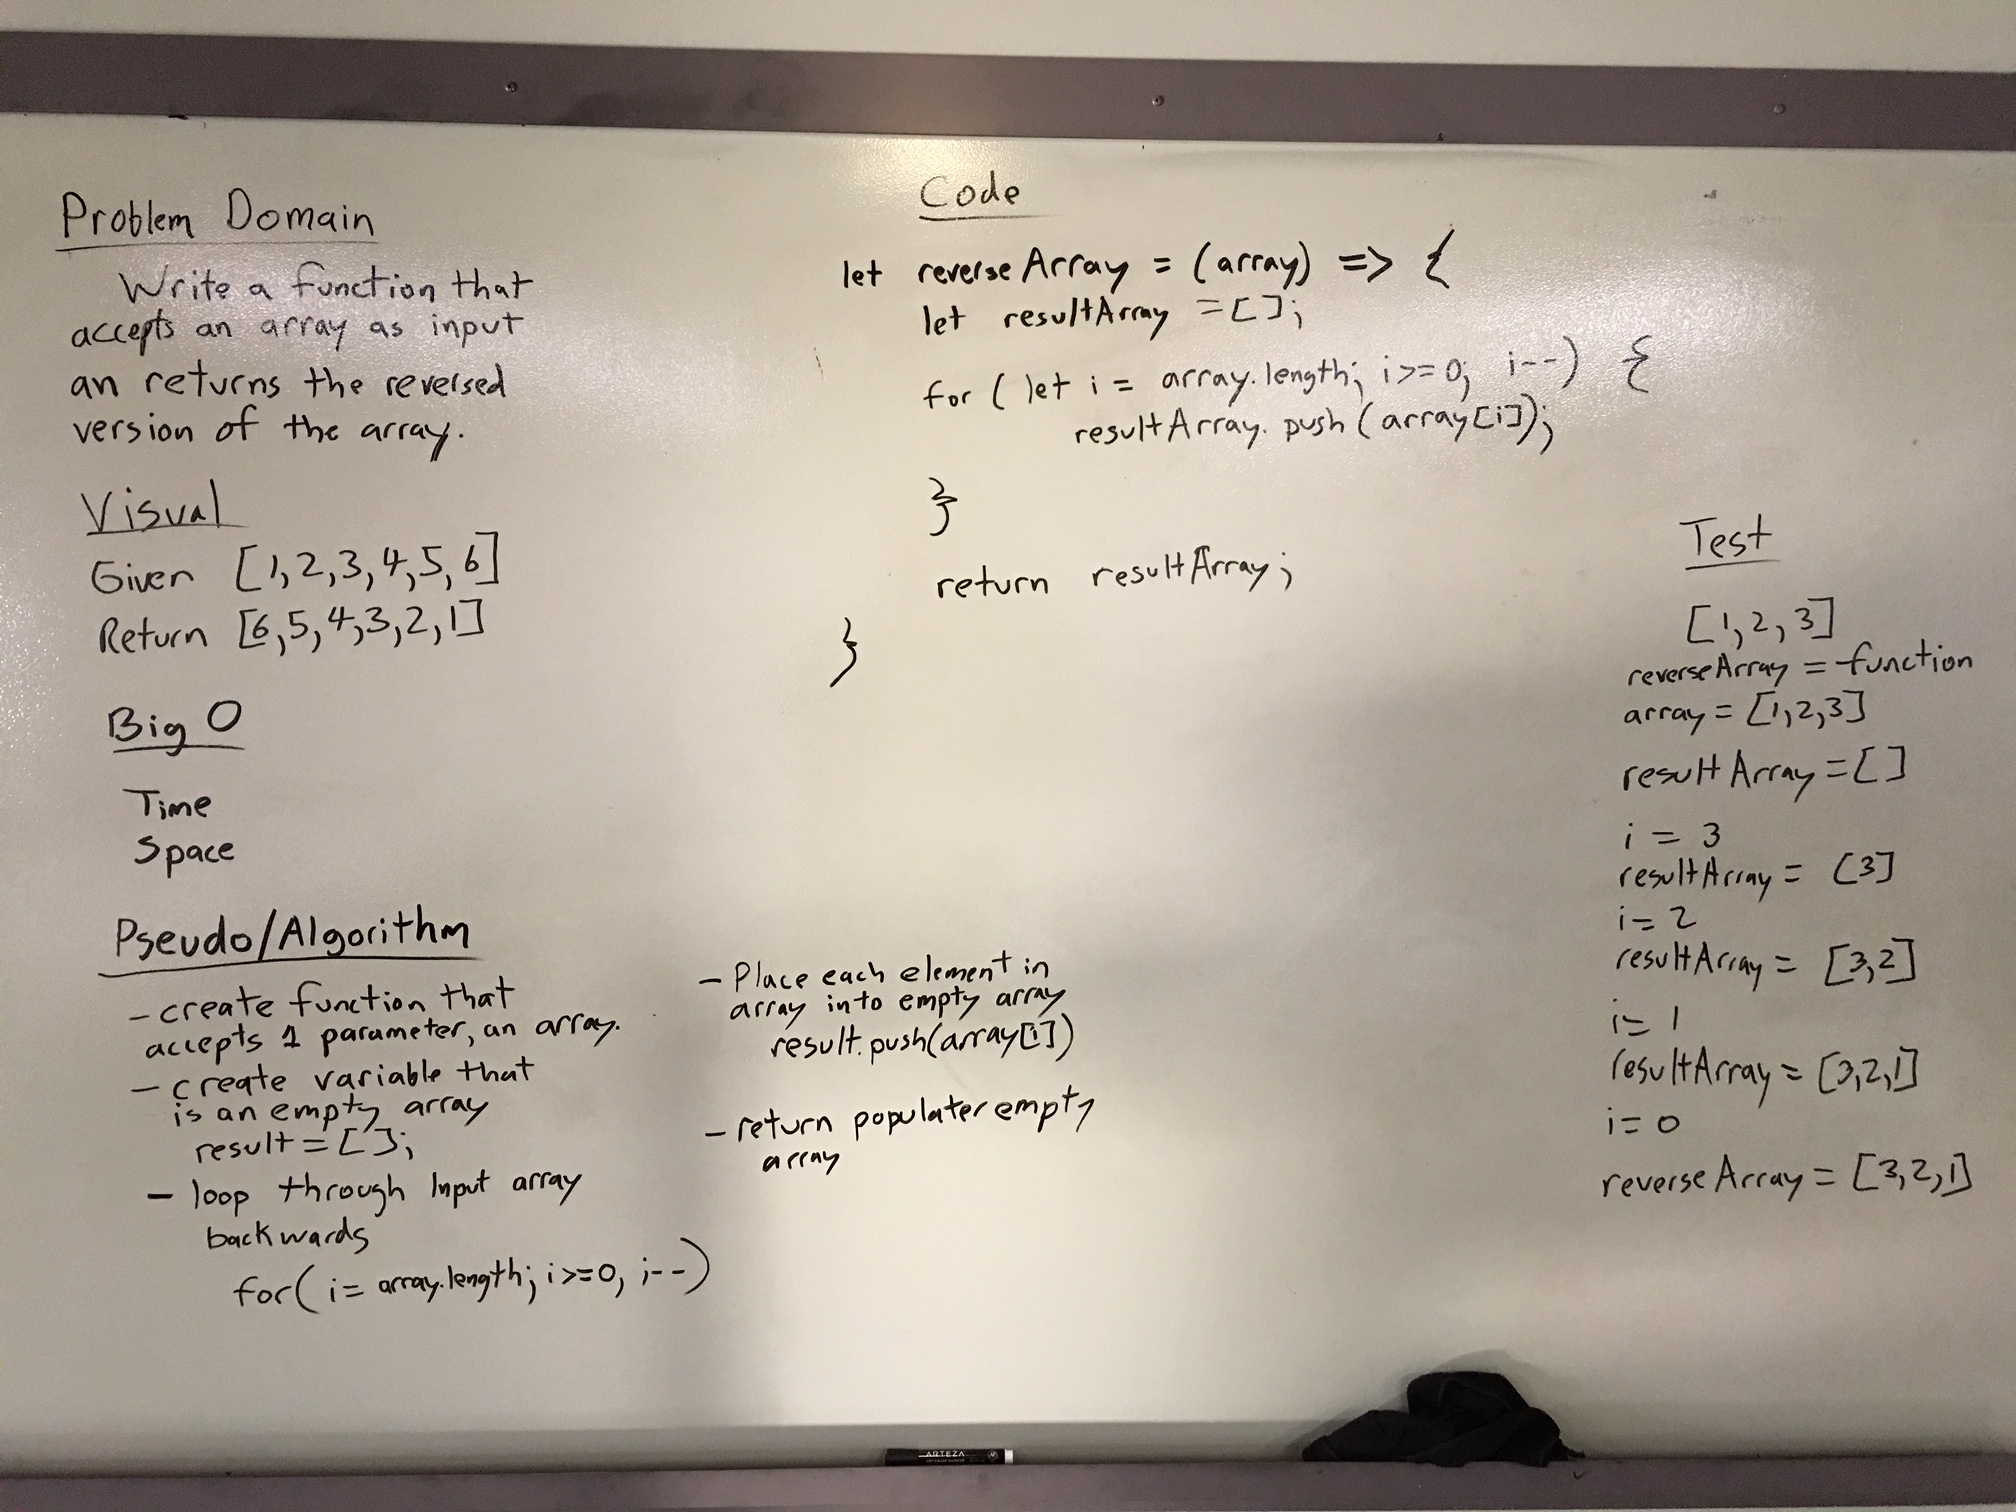 Problem Domain
Write a function that
accepts an array as input
an returns the reversed
version of the array.
Visual
Given [1,2,3,4,5,6]
Return [6,5,4,3,2,1]
Big O
Time
Space
Pseudo/Algorithm
- create function that
accepts 1 parameter, an array.
- create variable that
is an empty array
result = [];
- loop through Input array
backwards
for( i= array.length; i>=0, i--)
- Place each element in
array into empty array
result.push(array[i])
- return populater empty
array
Code
let reverseArray = (array) => {
let resultArray = [];
for ( let i = array.length; i>=0; i--) {
resultArray.push(array[i]);
}
return resultArray;
}
Test
[1,2,3]
reverseArray = function
array = [1,2,3]
resultArray = []
i = 3
resultArray = [3]
i = 2
resultArray = [3,2]
i = 1
resultArray = [3,2,1]
i = 0
reverseArray = [3,2,1]
ARTEZA